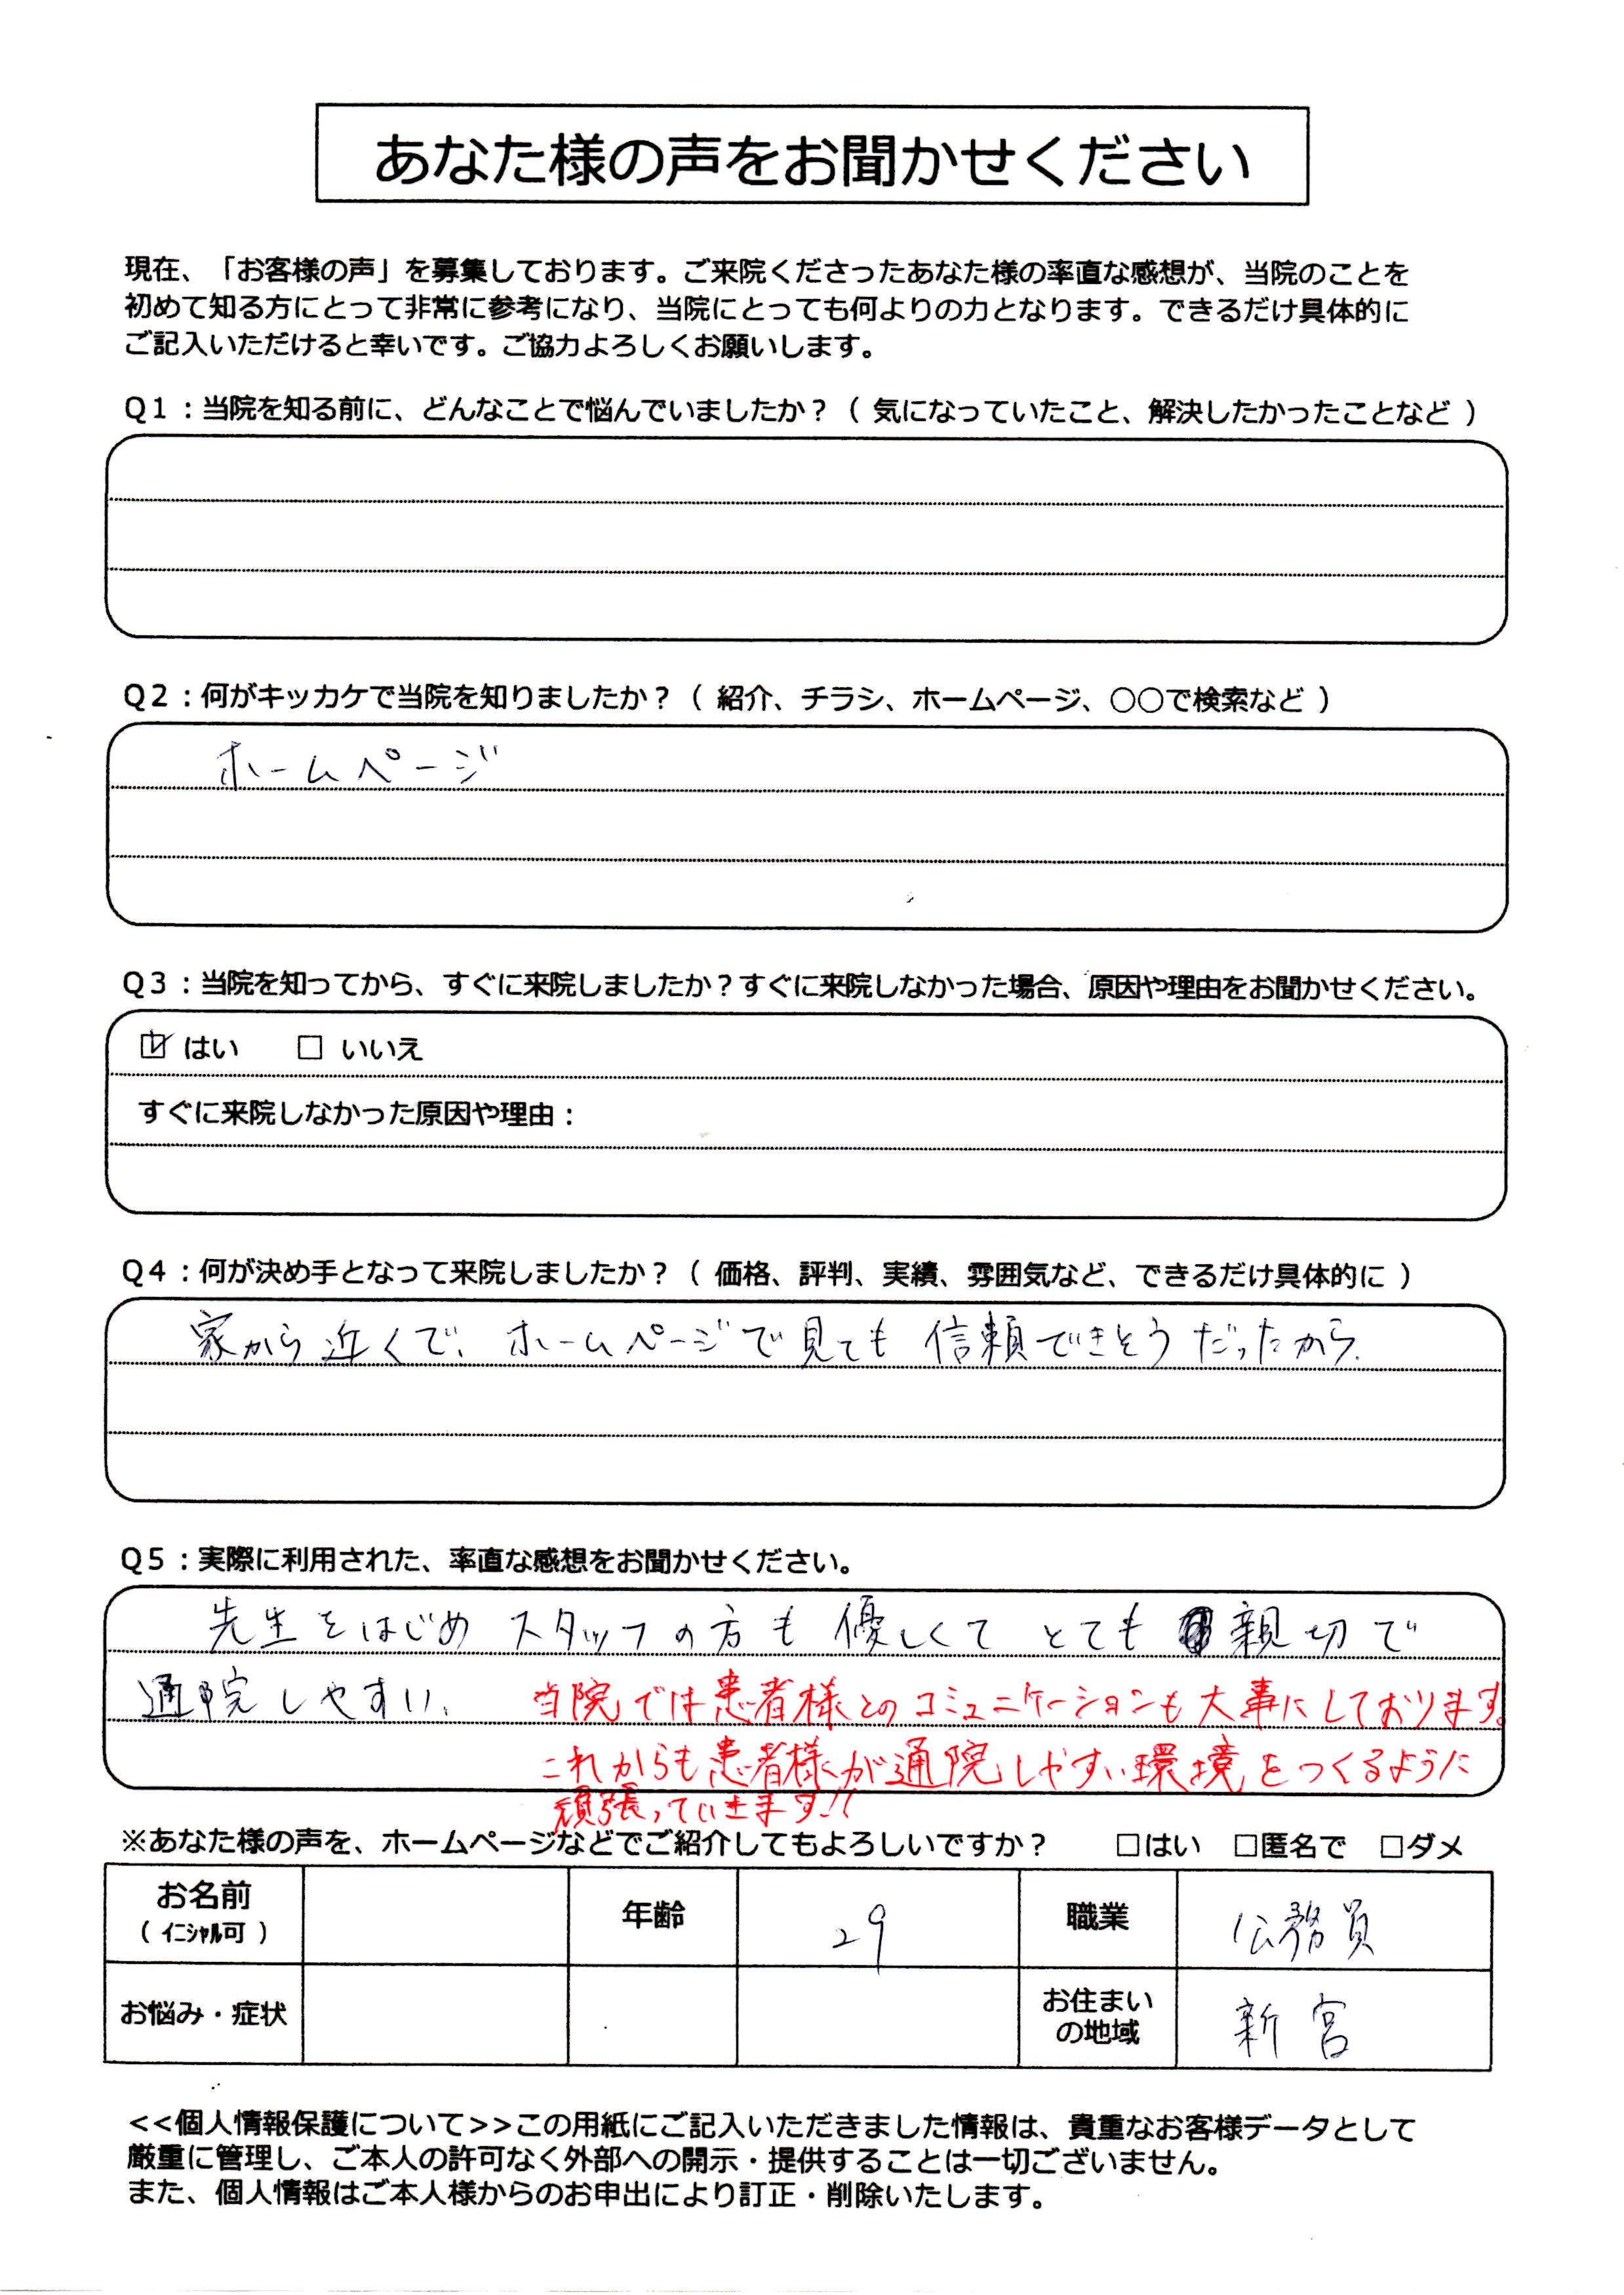 あなた様の声をお聞かせください
現在、「お客様の声」を募集しております。ご来院くださったあなた様の率直な感想が、当院のことを
初めて知る方にとって非常に参考になり、当院にとっても何よりの力となります。できるだけ具体的に
ご記入いただけると幸いです。ご協力よろしくお願いします。
Q1：当院を知る前に、どんなことで悩んでいましたか？（ 気になっていたこと、解決したかったことなど ）
Q2：何がキッカケで当院を知りましたか？（ 紹介、チラシ、ホームページ、○○で検索など ）
ホームページ
Q3：当院を知ってから、すぐに来院しましたか？すぐに来院しなかった場合、原因や理由をお聞かせください。
☑ はい □ いいえ
すぐに来院しなかった原因や理由：
Q4：何が決め手となって来院しましたか？（ 価格、評判、実績、雰囲気など、できるだけ具体的に ）
家から近くで、ホームページで見ても信頼できそうだったから、
Q5：実際に利用された、率直な感想をお聞かせください。
先生をはじめスタッフの方も優しくてとても親切で
通院しやすい、 当院では患者様とのコミュニケーションも大事にしております。
これからも患者様が通院しやすい環境をつくるように
頑張っていきます!!
※あなた様の声を、ホームページなどでご紹介してもよろしいですか？ □はい □匿名で □ダメ
お名前 年齢 29 職業 公務員
（ イニシャル可 ）
お悩み・症状 お住まい 新宮
の地域
<<個人情報保護について>>この用紙にご記入いただきました情報は、貴重なお客様データとして
厳重に管理し、ご本人の許可なく外部への開示・提供することは一切ございません。
また、個人情報はご本人様からのお申出により訂正・削除いたします。